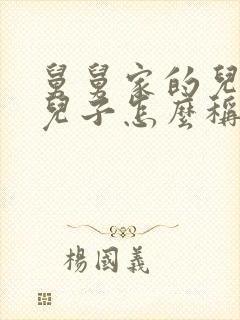 舅舅家的兒
兒子怎麼稱
楊國義